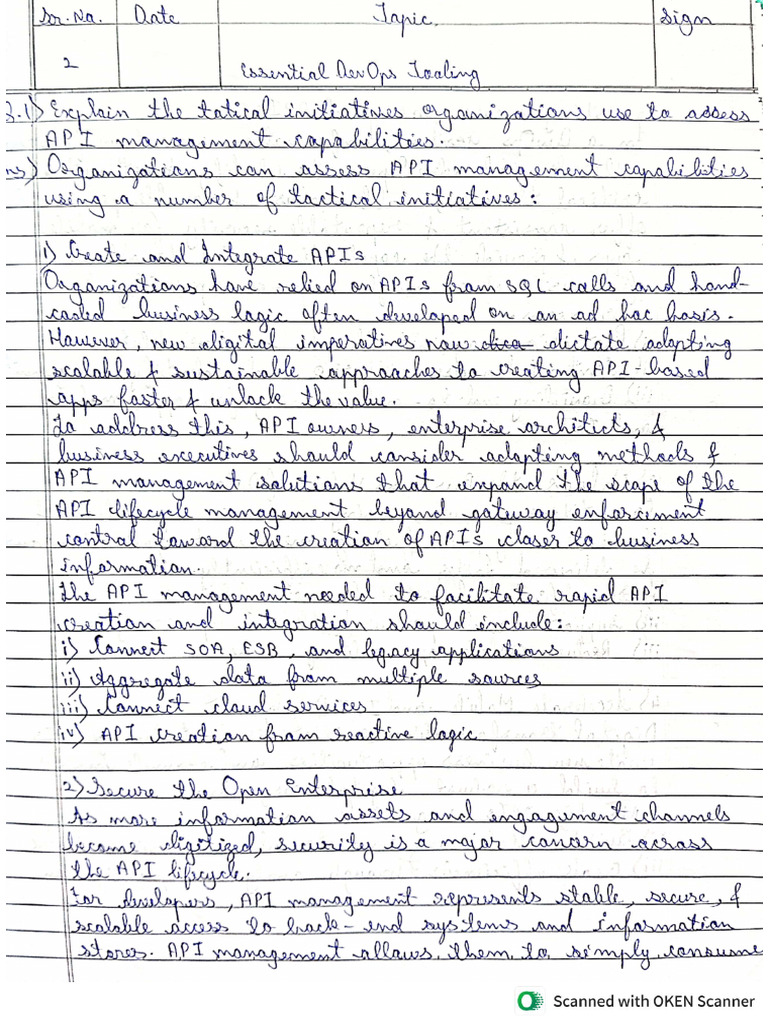 Sr. No. Date Topic. Sign
2 Essential DevOps Tooling
Q.1) Explain the tatical initiatives organizations use to assess
API management capabilities.
Ans) Organizations can assess API management capabilities
using a number of tactical initiatives:
1) Create and Integrate APIs
Organizations have relied on APIs from SQL calls and hand-
coded business logic often developed on an ad hoc basis.
However, new digital imperatives now dictate adopting
scalable & sustainable approaches to creating API-based
apps faster & unlock the value.
To address this, API owners, enterprise architects, &
business executives should consider adopting methods &
API management solutions that expand the scope of the
API lifecycle management beyond gateway enforcement
control toward the creation of APIs closer to business
information.
The API management needed to facilitate rapid API
creation and integration should include:
i) Connect SOA, ESB, and legacy applications
ii) Aggregate data from multiple sources
iii) Connect cloud services
iv) API creation from reactive logic
2) Secure the Open Enterprise
As more information assets and engagement channels
become digitized, security is a major concern across
the API lifecycle.
For developers, API management represents stable, secure, &
scalable access to back-end systems and information
stores. API management allows them to simply consume
Scanned with OKEN Scanner